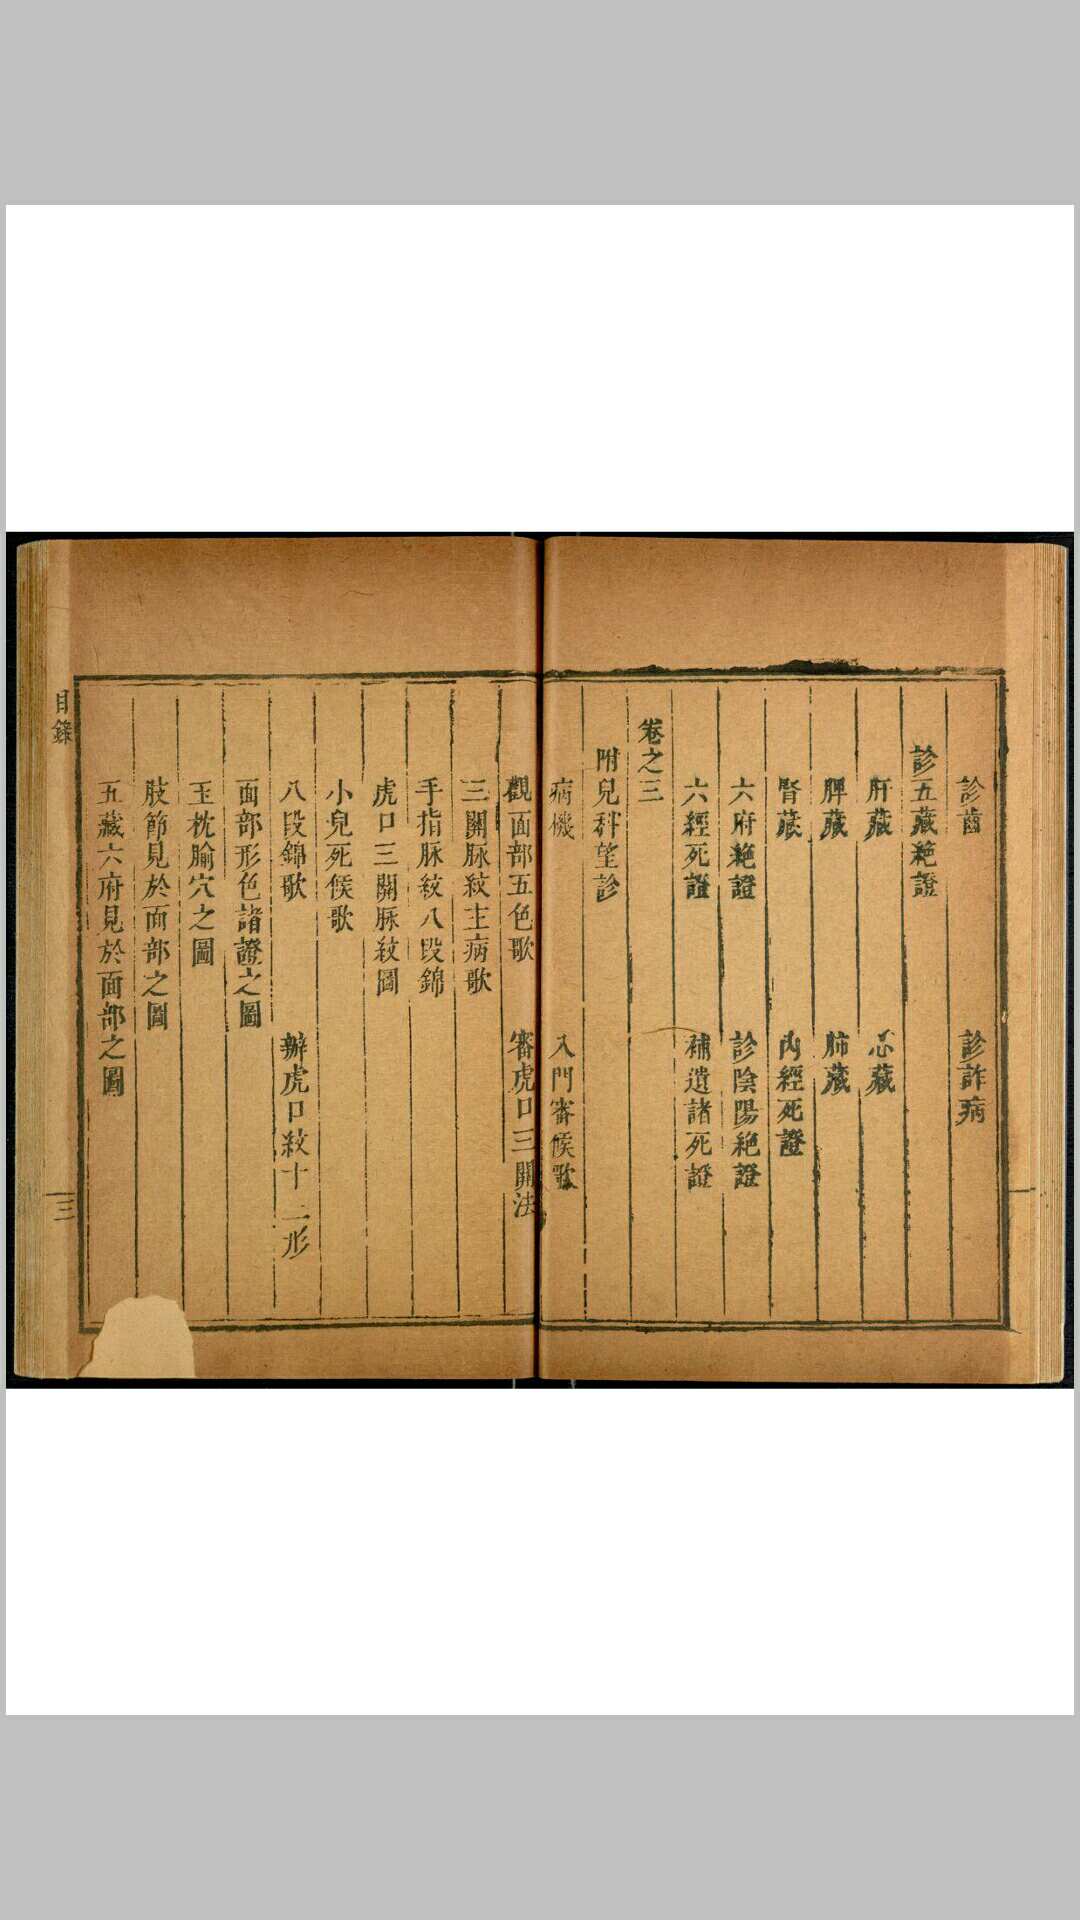 診齒　診詐病
診五藏絶證
肝藏　心藏
脾藏　肺藏
腎藏　內經死證
六府絶證　診陰陽絶證
六經死證　補遺諸死證
卷之三
附兒科望診
病機　入門審候歌
觀面部五色歌　審虎口三關法
三關脉紋主病歌
手指脉紋八段錦
虎口三關脉紋圖
小兒死候歌
八段錦歌　辦虎口紋十二形
面部形色諸證之圖
玉枕腧穴之圖
肢節見於面部之圖
五藏六府見於面部之圖
目錄
三